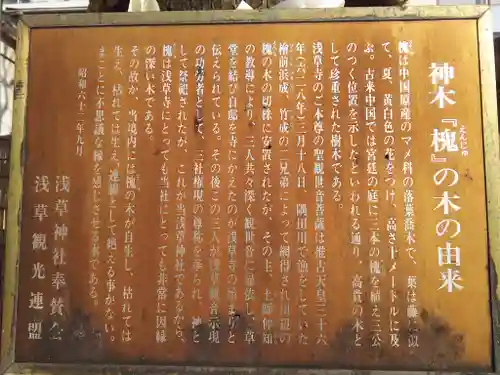 神木『槐』の木の由来
えんじゅ
槐は中国原産のマメ科の落葉喬木で、葉は藤に似
て、夏、黄白色の花をつけ、高さ十メートルに及
ぶ。古来中国では宮廷の庭に三本の槐を植え三公
のつく位置を示したといわれる通り、高貴の木と
して珍重された樹木である。
浅草寺のご本尊の聖観世音菩薩は推古天皇三十六
年(六二八年)三月十八日、隅田川で漁をしていた
檜前浜成、竹成の二兄弟によって網得され川辺の
槐の木の切株に安置されたが、その土、土師仲知
の教導により、三人共々深く観世音に帰依し、草
堂を結び自邸を寺にかえたのが浅草寺の始まりと
伝えられている。その後この三人が浅草観音示現
の功労者として、三社権現の尊称を奉られ、神と
して祭祀されたが、これが当浅草神社であるから、
槐は浅草寺にとっても当社にとっても非常に因縁
の深い木である。
その故か、当境内には槐の木が自生し、枯れては
生え、枯れては生え、連綿として絶える事がない。
まことに不思議な縁を感じさせる木である。
昭和六十二年九月
浅草神社奉賛会
浅草観光連盟